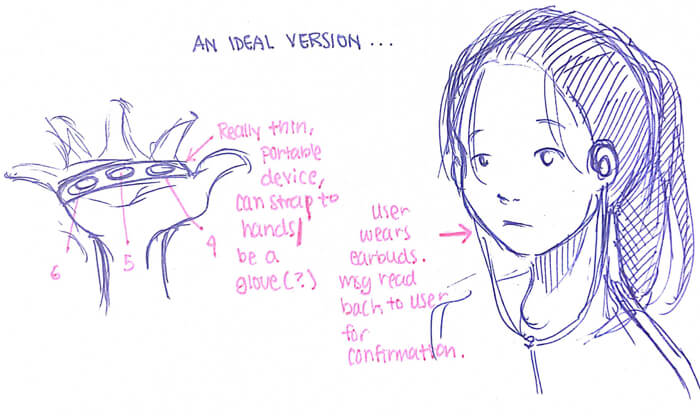 AN IDEAL VERSION ...
Really thin,
portable
device,
can strap to
hands/
be a
glove(?)
6
5
4
user
wears
earbuds.
msg read
back to user
for
confirmation.